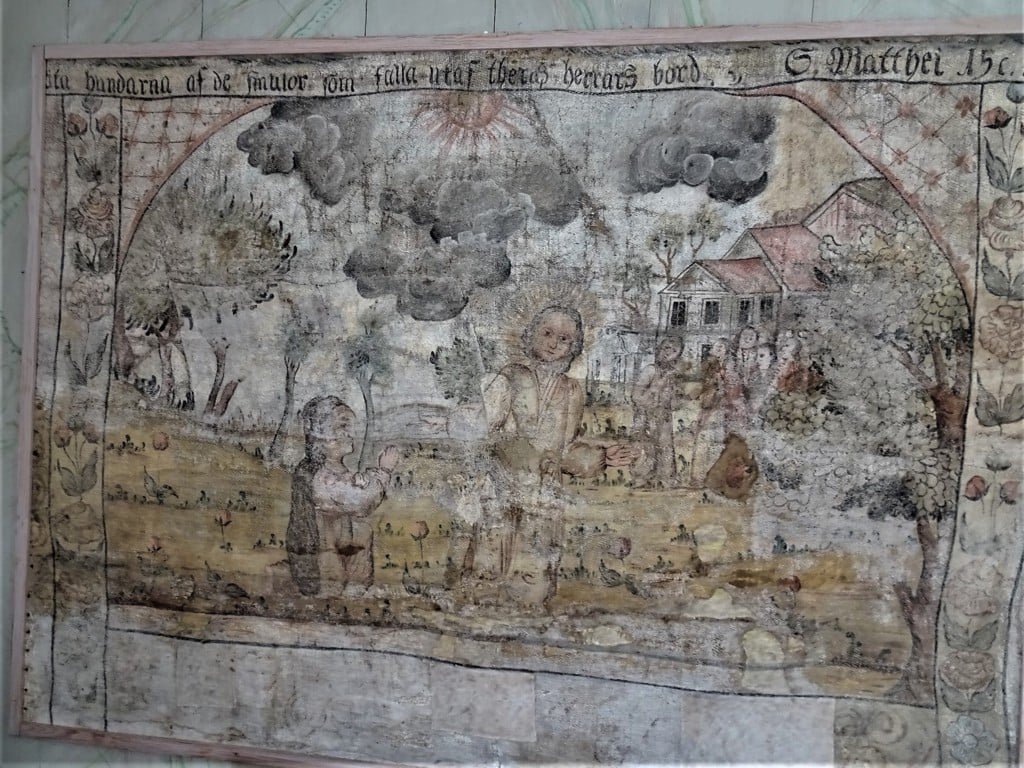 äta hundarna af de smulor som falla utaf theras herrars bord S. Matthei 15 c.